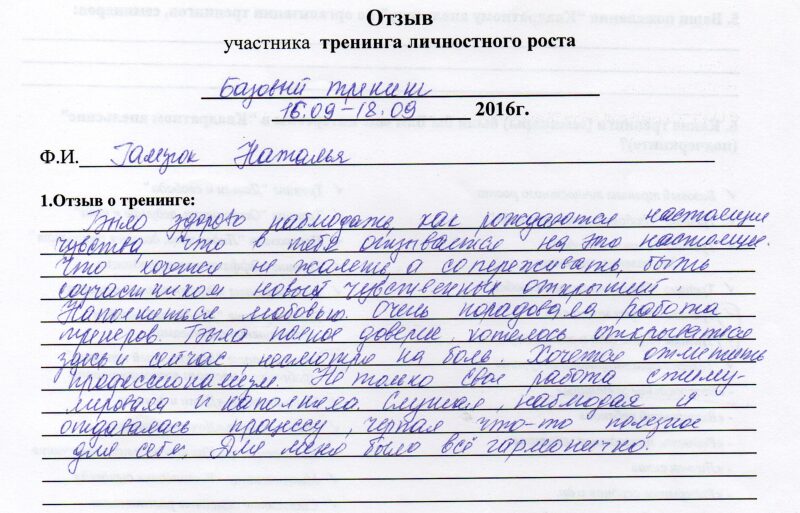 Отзыв
участника тренинга личностного роста
Базовый тренинг
16.09 – 18.09 2016г.
Ф.И. Гамзюк Наталья
1.Отзыв о тренинге:
Было здорово наблюдать, как рождаются настоящие
чувства, что в тебе отзывается на это настоящее.
Что хочется не жалеть, а сопереживать, быть
соучастником новых чувственных открытий.
Наполняться любовью. Очень порадовала работа
тренеров. Было полное доверие, хотелось открываться
здесь и сейчас, несмотря на боль. Хочется отметить
профессионализм. Не только своя работа стиму-
лировала и наполняла. Слушая, наблюдая я
отдавалась процессу, черпая что-то полезное
для себя. Для меня было всё гармонично.